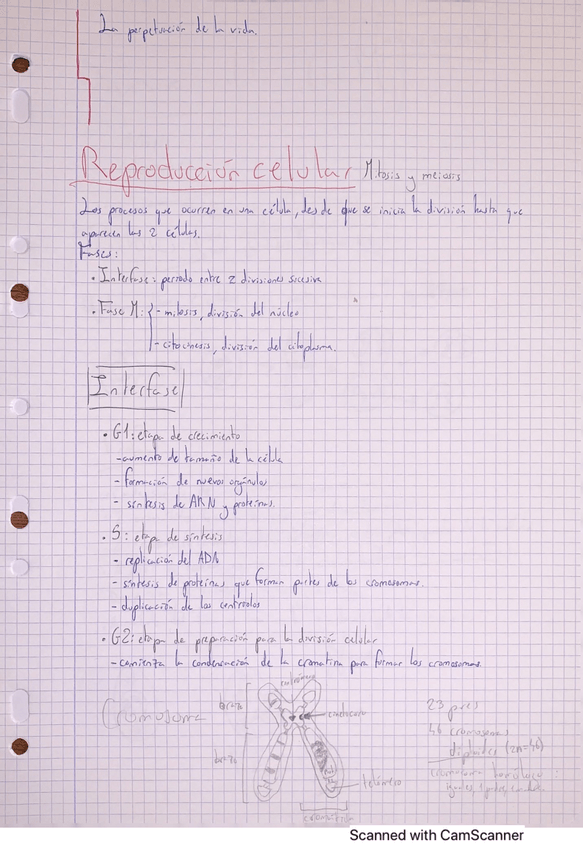 La perpetuación de la vida.
Reproducción celular Mitosis y meiosis
Los procesos que ocurren en una célula, desde que se inicia la división hasta que
aparecen las 2 células.
Fases:
• Interfase: periodo entre 2 divisiones sucesiva
• Fase M: { - mitosis, división del núcleo
- citocinesis, división del citoplasma.
Interfase
• G1: etapa de crecimiento
- aumento de tamaño de la célula
- formación de nuevos orgánulos
- síntesis de ARN y proteínas.
• S: etapa de síntesis
- replicación del ADN
- síntesis de proteínas que forman partes de los cromosomas.
- duplicación de los centriolos
• G2: etapa de preparación para la división celular
- comienza la condensación de la cromatina para formar los cromosomas.
Cromosoma
brazo
brazo
telómero
23 pares
46 cromosomas
diploides (2n=46)
Scanned with CamScanner